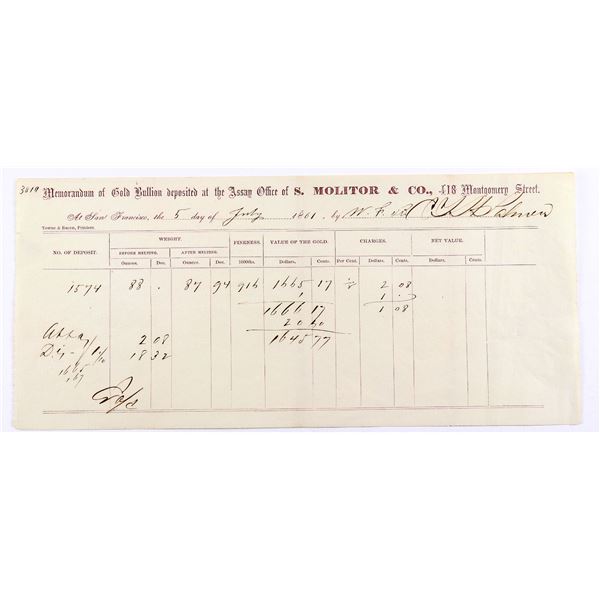 3019
Memorandum of Gold Bullion deposited at the Assay Office of S. MOLITOR & CO., 418 Montgomery Street.
At San Francisco, the 5 day of July 1861, by W. F.
Towne & Bacon, Printers.
NO. OF DEPOSIT. WEIGHT. FINENESS. VALUE OF THE GOLD. CHARGES. NET VALUE.
BEFORE MELTING. AFTER MELTING.
Ounces. Dec. Ounces. Dec. 1000ths. Dollars. Cents. Per Cent. Dollars. Cents. Dollars. Cents.
1574 88 . 87 94 916 1665 17 1/8 2 08
1 1 .
1666 17 1 08
20 40
Assay 2 08 1645 77
Dis- 18 32
1665
167